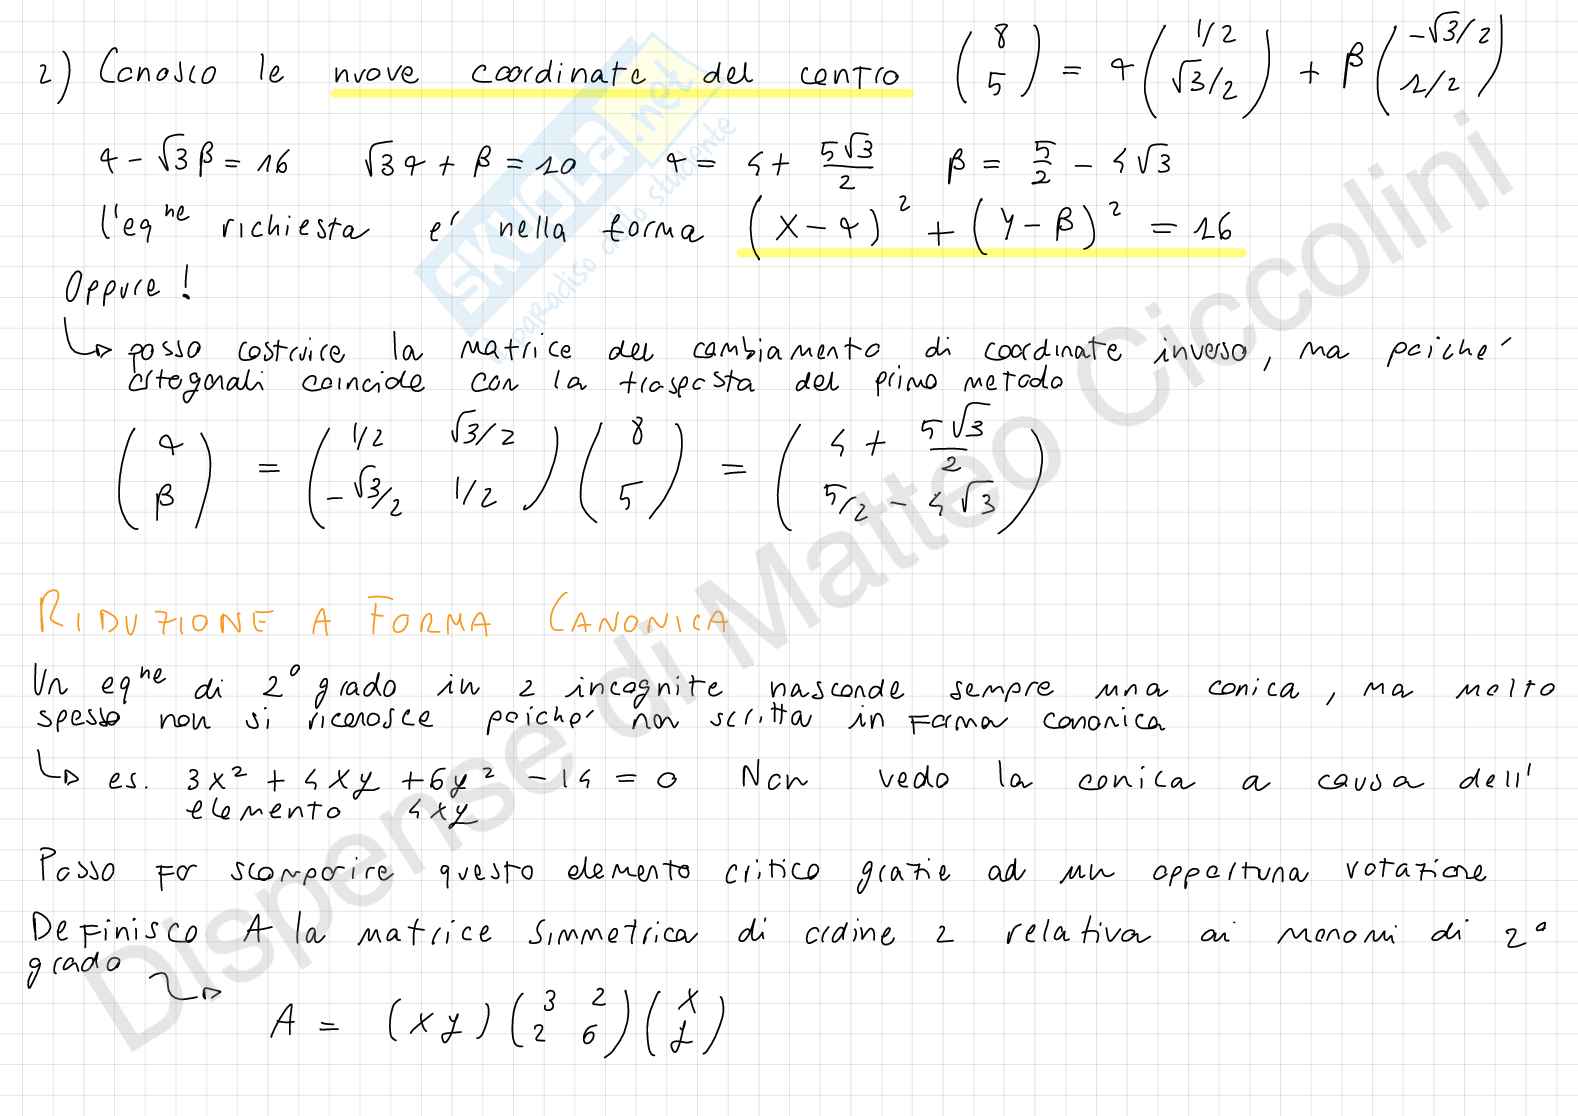 2) Conosco le nuove coordinate del centro (8 5) = α (1/2 √3/2) + β (-√3/2 1/2)
α - √3 β = 16 √3 α + β = 10 α = 4 + 5√3/2 β = 5/2 - 4√3
l'eqⁿᵉ richiesta e' nella forma (X - α)² + (Y - β)² = 16
Oppure !
↳ posso costruire la matrice del cambiamento di coordinate inverso, ma poiche'
ortogonali coincide con la trasposta del primo metodo
(α β) = (1/2 √3/2 -√3/2 1/2) (8 5) = (4 + 5√3/2 5/2 - 4√3)
RIDUZIONE A FORMA CANONICA
Un eqⁿᵉ di 2° grado in 2 incognite nasconde sempre una conica, ma molto
spesso non si riconosce poiche' non scritta in forma canonica
↳ es. 3x² + 4xy + 6y² - 14 = 0 Non vedo la conica a causa dell'
elemento 4xy
Posso far scomparire questo elemento critico grazie ad un opportuna rotazione
Definisco A la matrice simmetrica di ordine 2 relativa ai monomi di 2°
grado
↳ A = (x y) (3 2 2 6) (x y)
SKUOLA.net
il paradiso dello studente
Dispense di Matteo Ciccolini